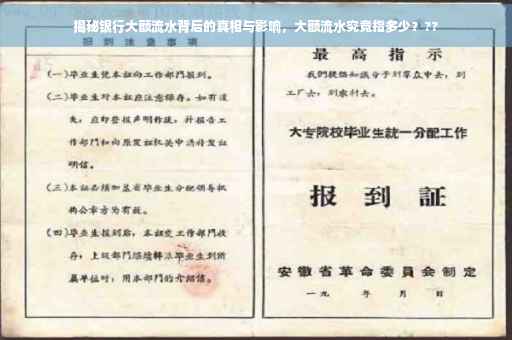 揭秘银行大额流水背后的真相与影响，大额流水究竟指多少？??
报到注意事项
（一）毕业生凭本证向工作部门报到。
（二）毕业生对本证应注意保存。如有遗
失，应即登报声明作废，并报告工
作部门和向原发证机关申请补发证
明信。
（三）本证必须加盖省毕业生分配领导机
构公章方为有效。
（四）毕业生报到后，本证交工作部门收
存；上级部门继续转派毕业生到所
属单位时，用本部门的介绍信。
最高指示
我们提倡知识分子到羣众中去，到
工厂去，到农村去。
大专院校毕业生統一分配工作
报到証
安徽省革命委員会制定
一九 年 月 日